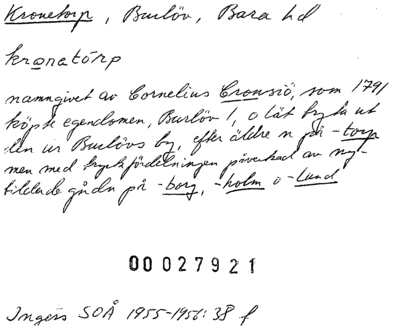 Kronetorp, Burlöv, Bara hd
kronatörp
namngivet av Cornelius Cronsiö, som 1791
köpte egendomen, Burlöv 1, o lät bryta ut
den ur Burlövs by, efter äldre n på -torp
men med tryckfördelningen påverkad av ny-
bildade gårdn på -borg, -holm o -lund
00027921
Ingers SOÅ 1955-1956: 38 f